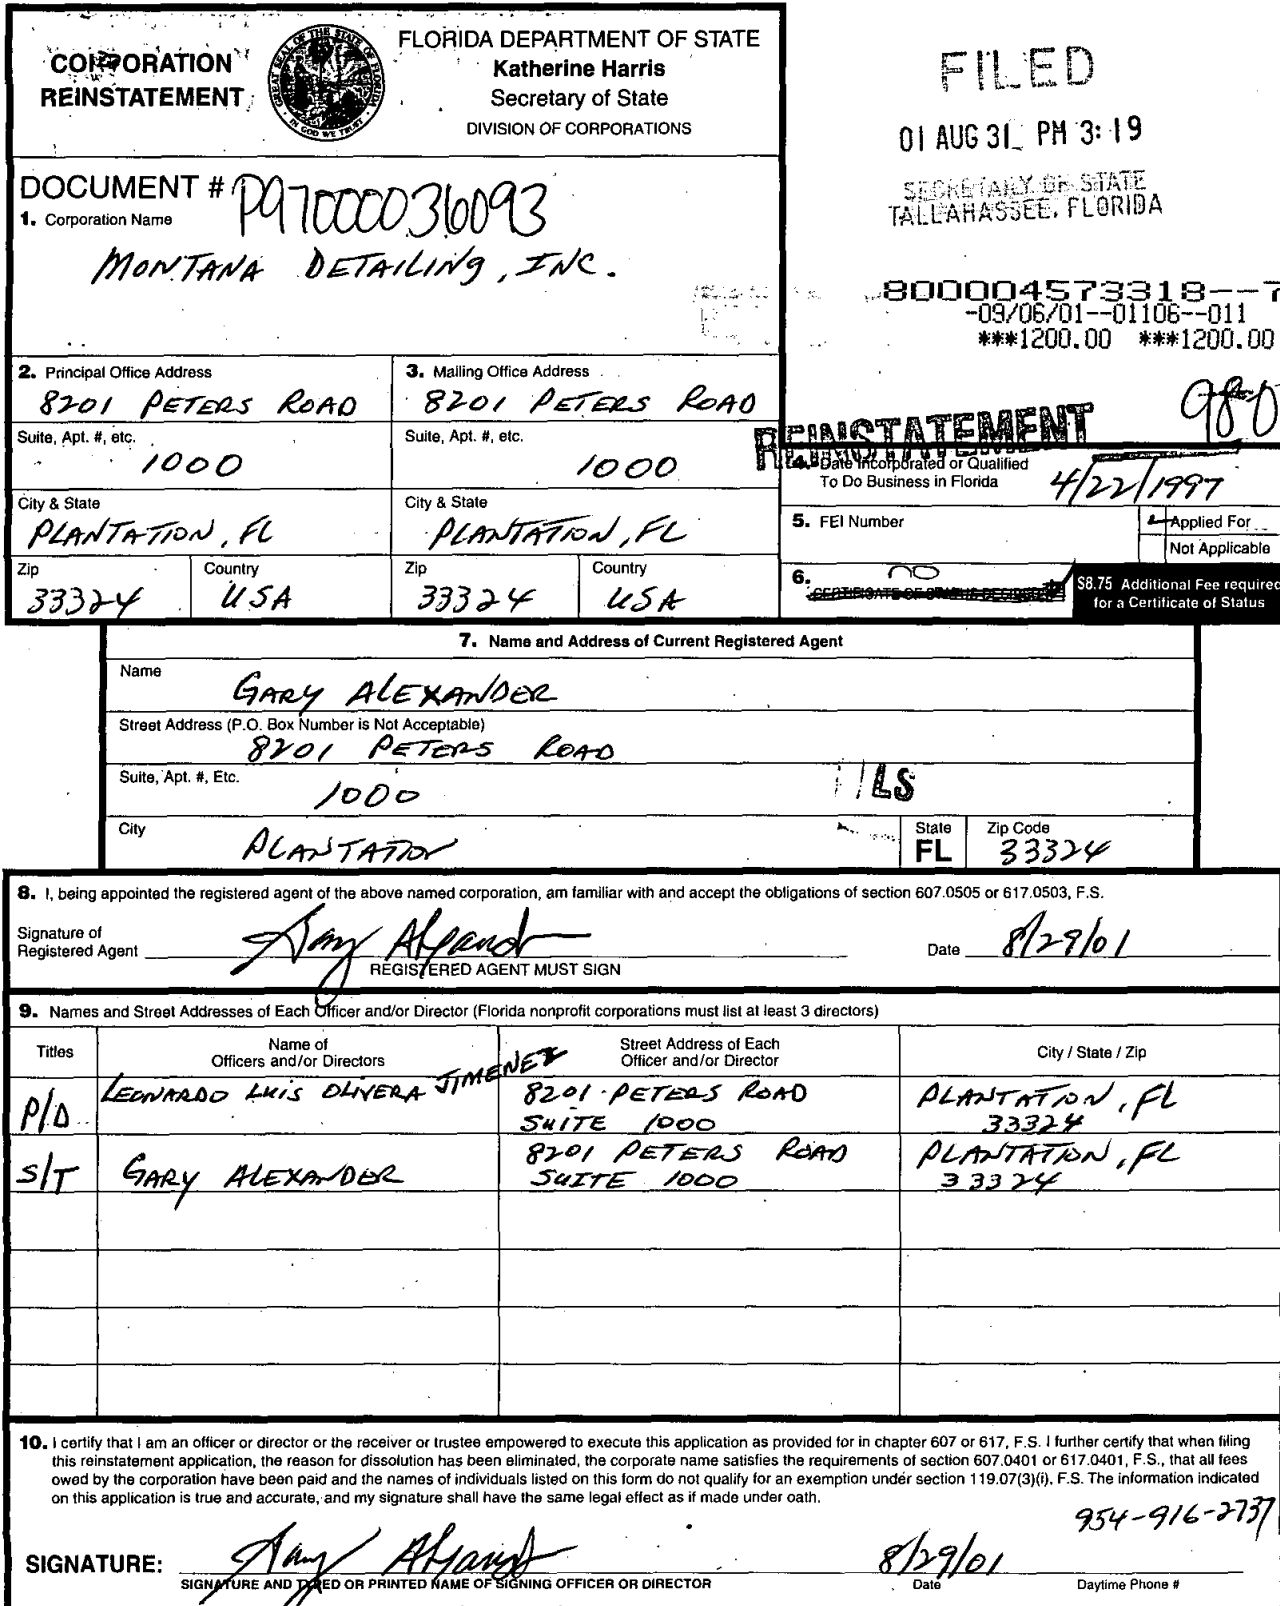 CORPORATION
REINSTATEMENT
GREAT SEAL OF THE STATE OF FLORIDA
IN GOD WE TRUST
FLORIDA DEPARTMENT OF STATE
Katherine Harris
Secretary of State
DIVISION OF CORPORATIONS
FILED
01 AUG 31 PM 3:19
SECRETARY OF STATE
TALLAHASSEE, FLORIDA
DOCUMENT # P97000036093
1. Corporation Name
MONTANA DETAILING, INC.
800004573318--7
-09/06/01--01106--011
***1200.00 ***1200.00
2. Principal Office Address
8201 PETERS ROAD
3. Mailing Office Address
8201 PETERS ROAD
Suite, Apt. #, etc.
1000
Suite, Apt. #, etc.
1000
City & State
PLANTATION, FL
City & State
PLANTATION, FL
Zip
33324
Country
USA
Zip
33324
Country
USA
REINSTATEMENT
4. Date Incorporated or Qualified
To Do Business in Florida
4/22/1997
5. FEI Number
Applied For
Not Applicable
6. NO
CERTIFICATE OF STATUS DESIRED
$8.75 Additional Fee required
for a Certificate of Status
7. Name and Address of Current Registered Agent
Name
GARY ALEXANDER
Street Address (P.O. Box Number is Not Acceptable)
8201 PETERS ROAD
Suite, Apt. #, Etc.
1000
LS
City
PLANTATION
State
FL
Zip Code
33324
8. I, being appointed the registered agent of the above named corporation, am familiar with and accept the obligations of section 607.0505 or 617.0503, F.S.
Signature of
Registered Agent Gary Alexander
REGISTERED AGENT MUST SIGN
Date 8/29/01
9. Names and Street Addresses of Each Officer and/or Director (Florida nonprofit corporations must list at least 3 directors)
Titles
Name of
Officers and/or Directors
Street Address of Each
Officer and/or Director
City / State / Zip
P/D
LEONARDO LUIS OLIVERA JIMENEZ
8201 PETERS ROAD
SUITE 1000
PLANTATION, FL
33324
S/T
GARY ALEXANDER
8201 PETERS ROAD
SUITE 1000
PLANTATION, FL
33324
10. I certify that I am an officer or director or the receiver or trustee empowered to execute this application as provided for in chapter 607 or 617, F.S. I further certify that when filing
this reinstatement application, the reason for dissolution has been eliminated, the corporate name satisfies the requirements of section 607.0401 or 617.0401, F.S., that all fees
owed by the corporation have been paid and the names of individuals listed on this form do not qualify for an exemption under section 119.07(3)(i), F.S. The information indicated
on this application is true and accurate, and my signature shall have the same legal effect as if made under oath.
954-916-2737
SIGNATURE: Gary Alexander
8/29/01
SIGNATURE AND TYPED OR PRINTED NAME OF SIGNING OFFICER OR DIRECTOR
Date
Daytime Phone #